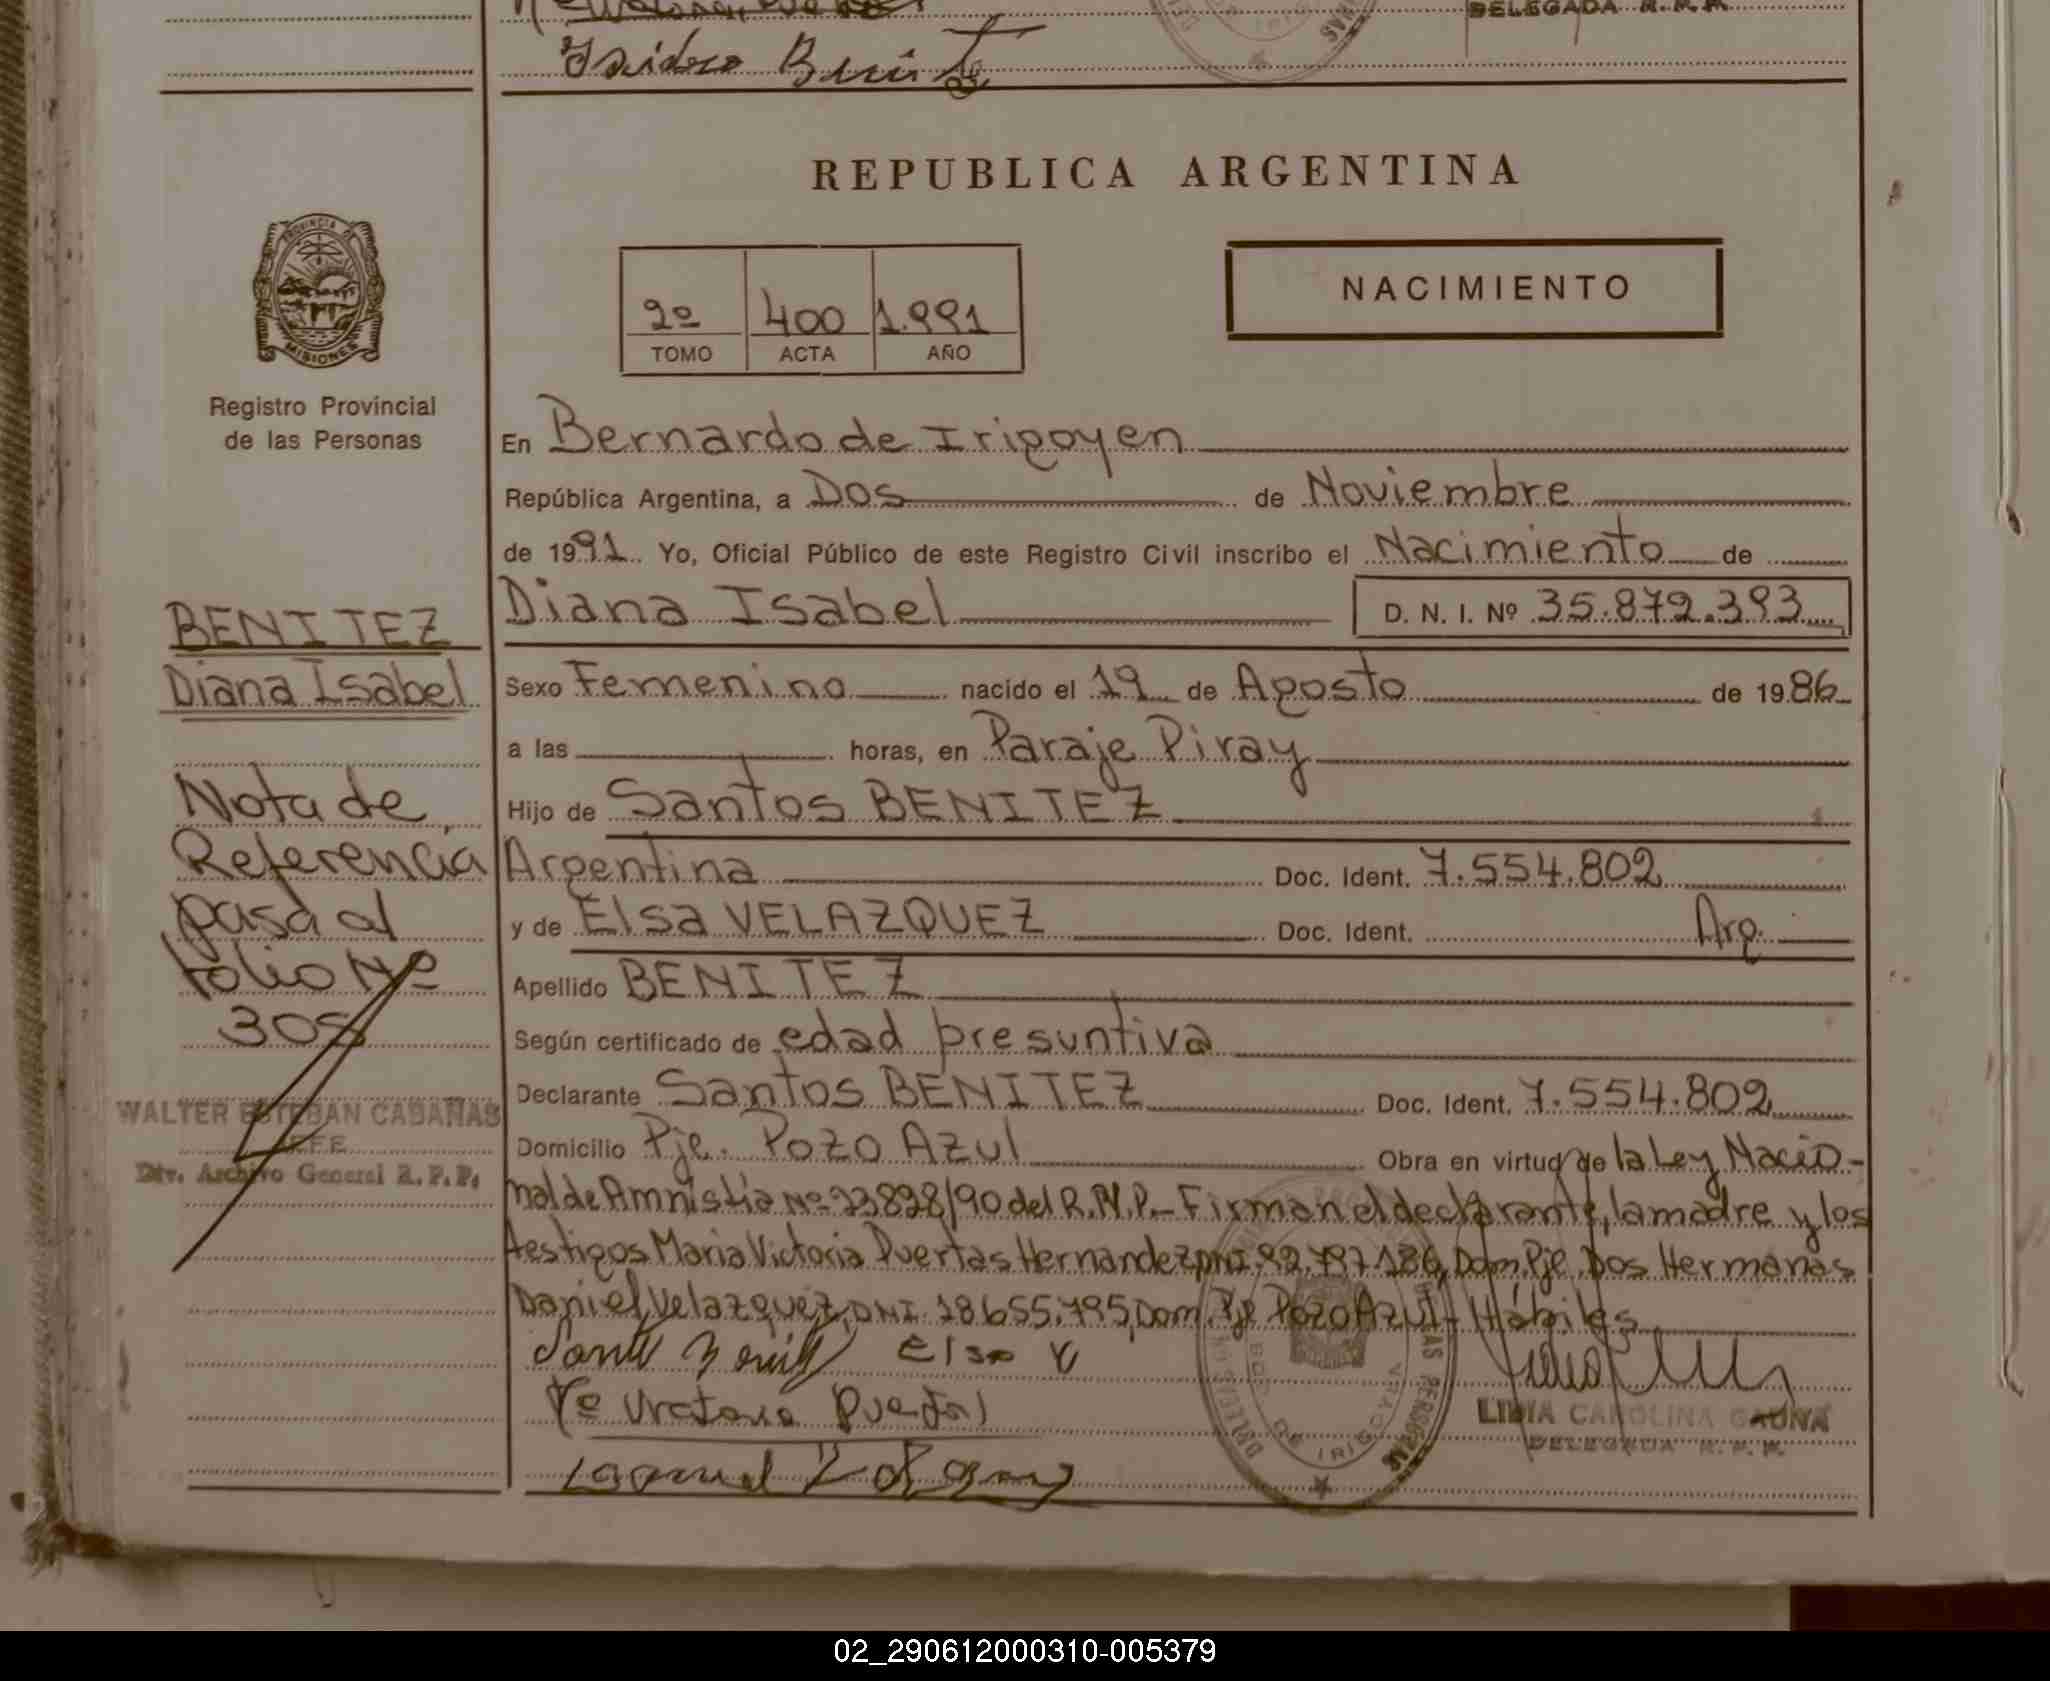 Isidoro Benit
DELEGADA R.P.P.
REPUBLICA ARGENTINA
PROVINCIA DE
MISIONES
Registro Provincial
de las Personas
2º 400 1.991
TOMO ACTA AÑO
NACIMIENTO
En Bernardo de Irigoyen
República Argentina, a Dos de Noviembre
de 1991. Yo, Oficial Público de este Registro Civil inscribo el Nacimiento de
Diana Isabel D. N. I. Nº 35.872.393
BENITEZ
Diana Isabel
Sexo Femenino nacido el 19 de Agosto de 1986
a las horas, en Paraje Piray
Hijo de Santos BENITEZ
Argentina Doc. Ident. 7.554.802
y de Elsa VELAZQUEZ Doc. Ident. Arg.
Apellido BENITEZ
Según certificado de edad presuntiva
Declarante Santos BENITEZ Doc. Ident. 7.554.802
Domicilio Pje. Pozo Azul Obra en virtud de la Ley Nacio-
nal de Amnistía Nº 23828/90 del R.N.P.- Firman el declarante, la madre y los
testigos Maria Victoria Puertas Hernandez DNI. 92.797.186, Dom. Pje. Dos Hermanas
Daniel Velazquez, DNI. 18655.795, Dom. Pje Pozo Azul - Hábiles
Elsa V
Mª Victoria Puertas
LIDIA CAROLINA GAUNA
DELEGADA R.P.P.
DE IRIGOYEN
Nota de
Referencia
pasa al
folio Nº
308
WALTER ESTEBAN CABAÑAS
JEFE
Div. Archivo General R.P.P.
02_290612000310-005379